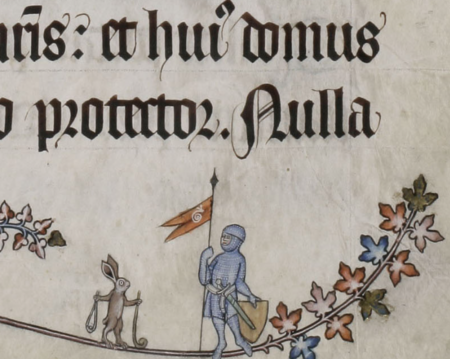 uris: et hui⁹ domus
o protector. Nulla